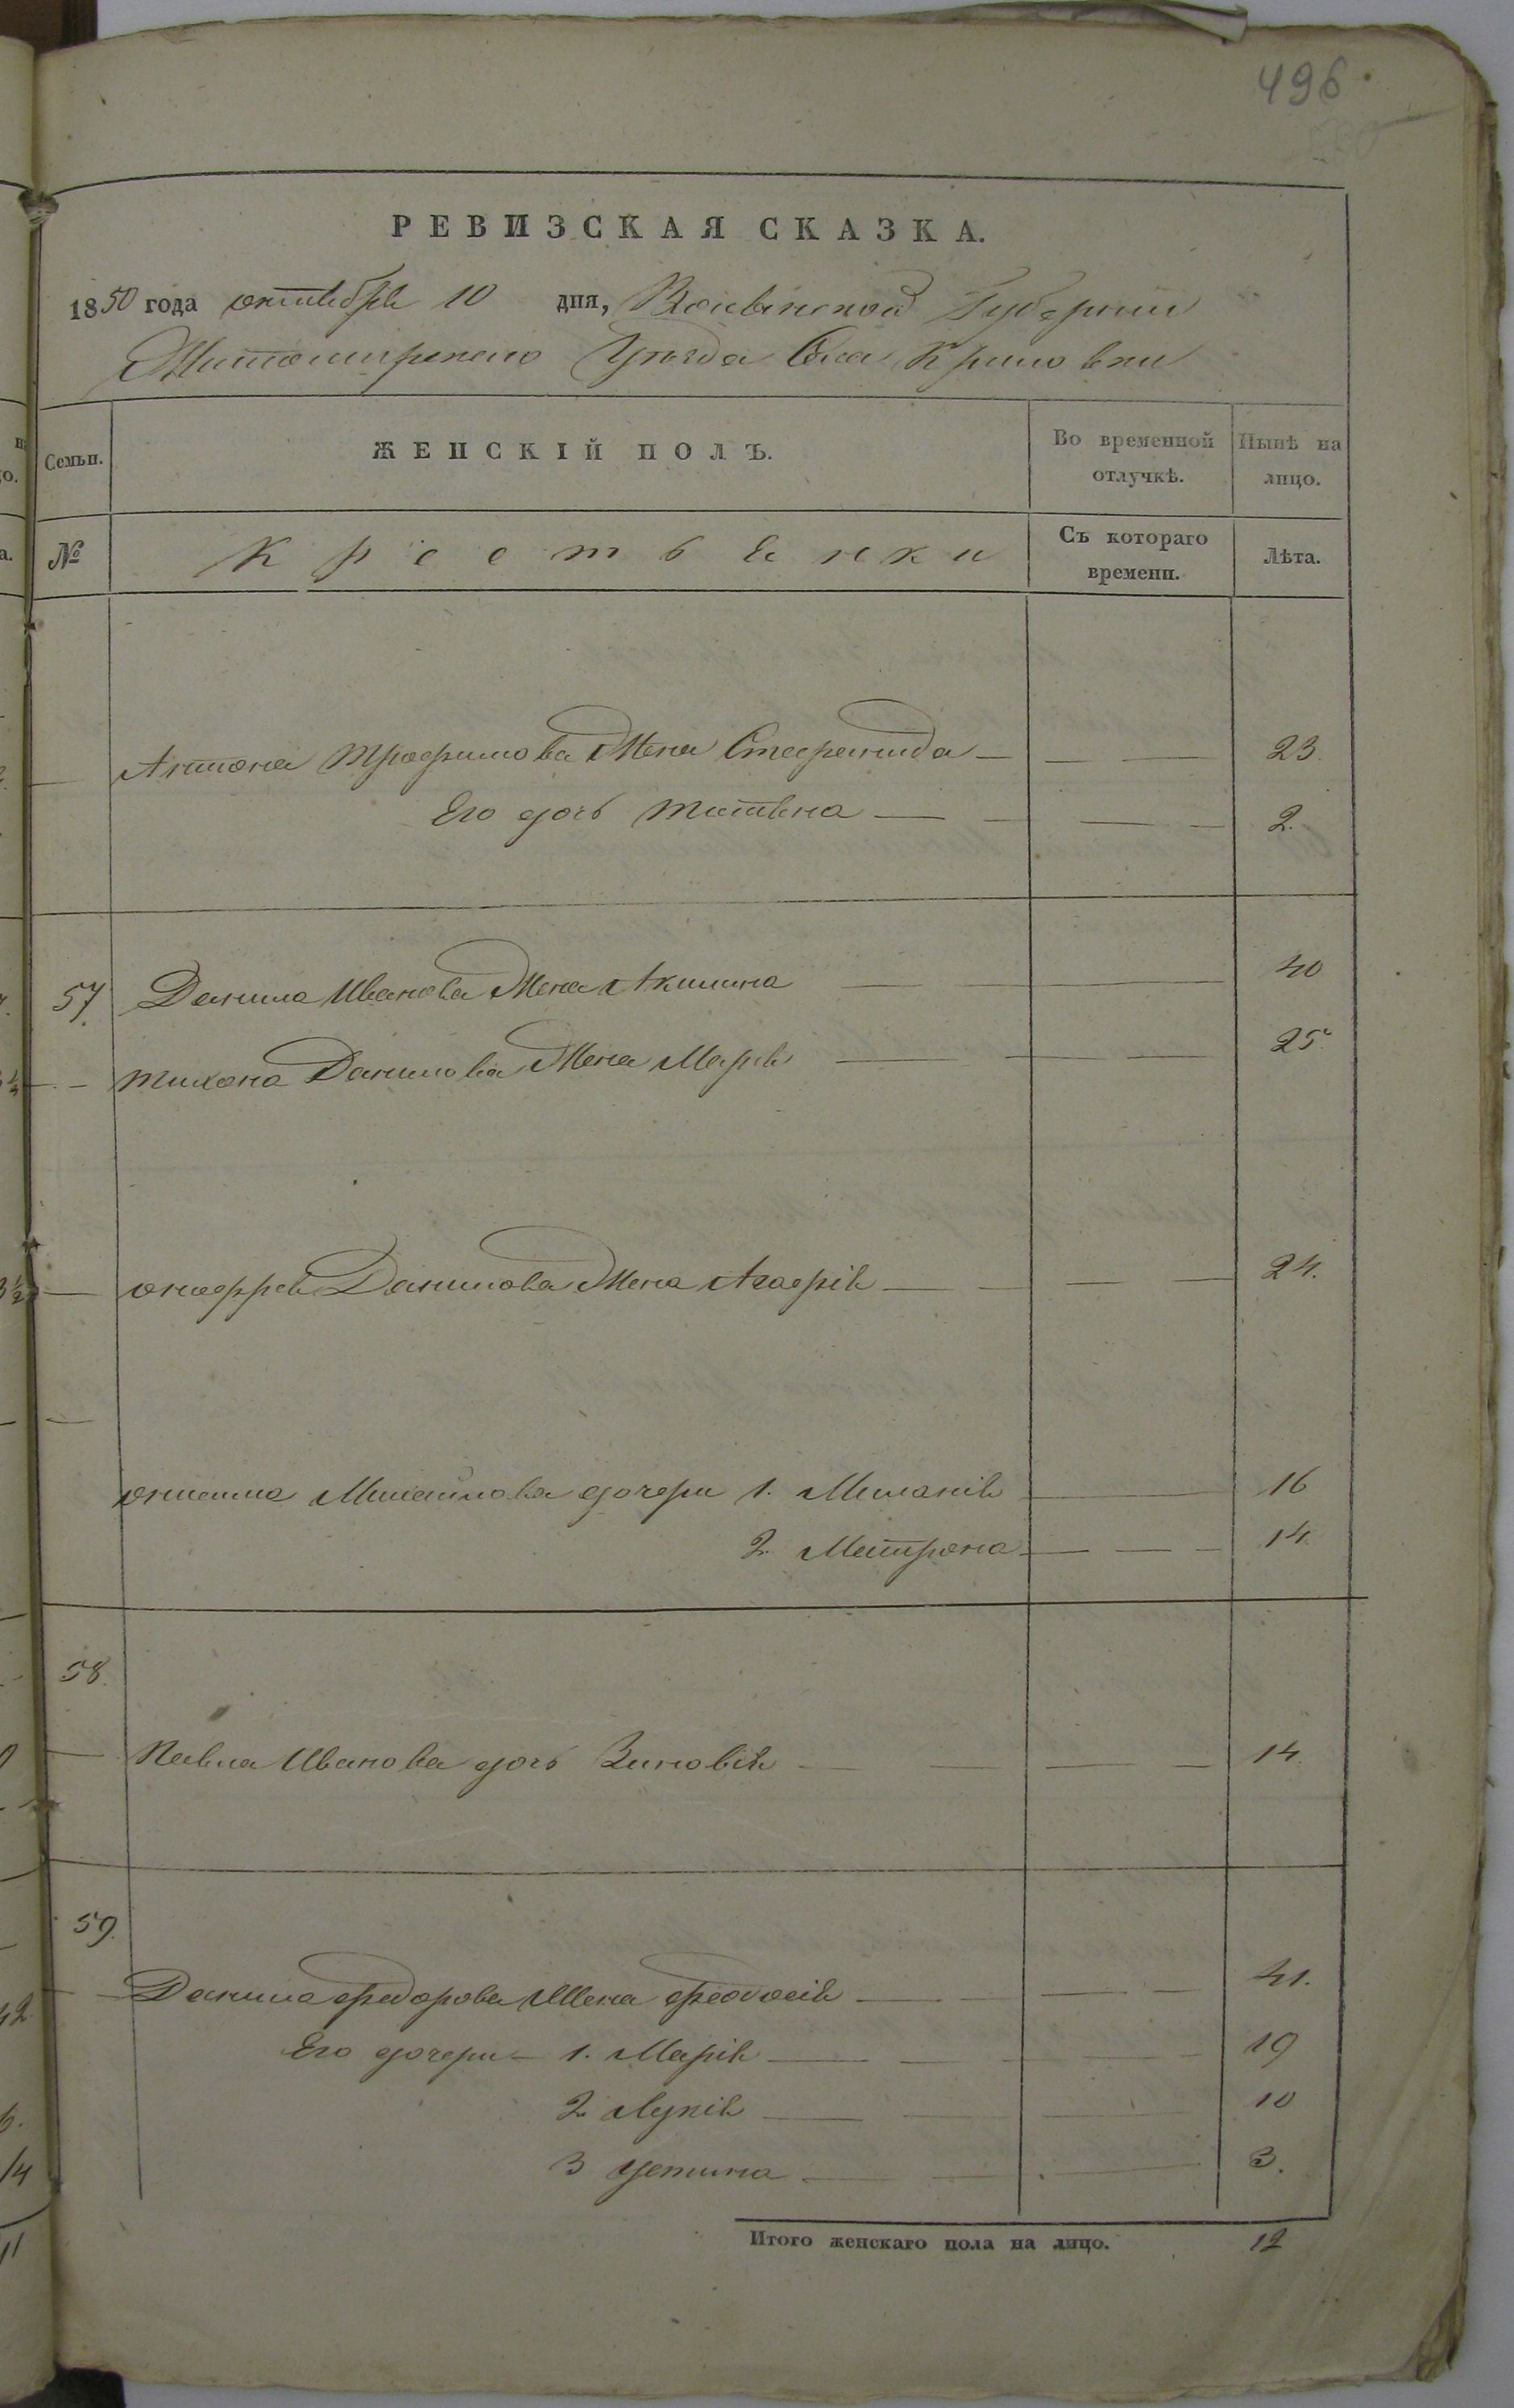 496
РЕВИЗСКАЯ СКАЗКА.
1850 года октября 10 дня, Волынской Губернии
Житомирского Уезда Села
Семьи. ЖЕНСКІЙ ПОЛЪ. Во временной отлучкѣ. Нынѣ на лицо.
№ Крестьянки Съ котораго времени. Лѣта.
Антона Трофимова Жена Степанида 23.
Его дочь Татьяна 2.
57. Данила Иванова Жена Акилина 40
Тихона Данилова Жена Марія 25.
Онофрея Данилова Жена Агафія 24.
Михайлова дочери 1. Миланія 16
2. Матрона 14.
58.
Павла Иванова дочь Зиновія 14.
59.
Данила Федорова Жена Феодосія 41.
Его дочери 1. Марія 19
2 Лукія 10
3 Устина 3.
Итого женскаго пола на лицо. 12